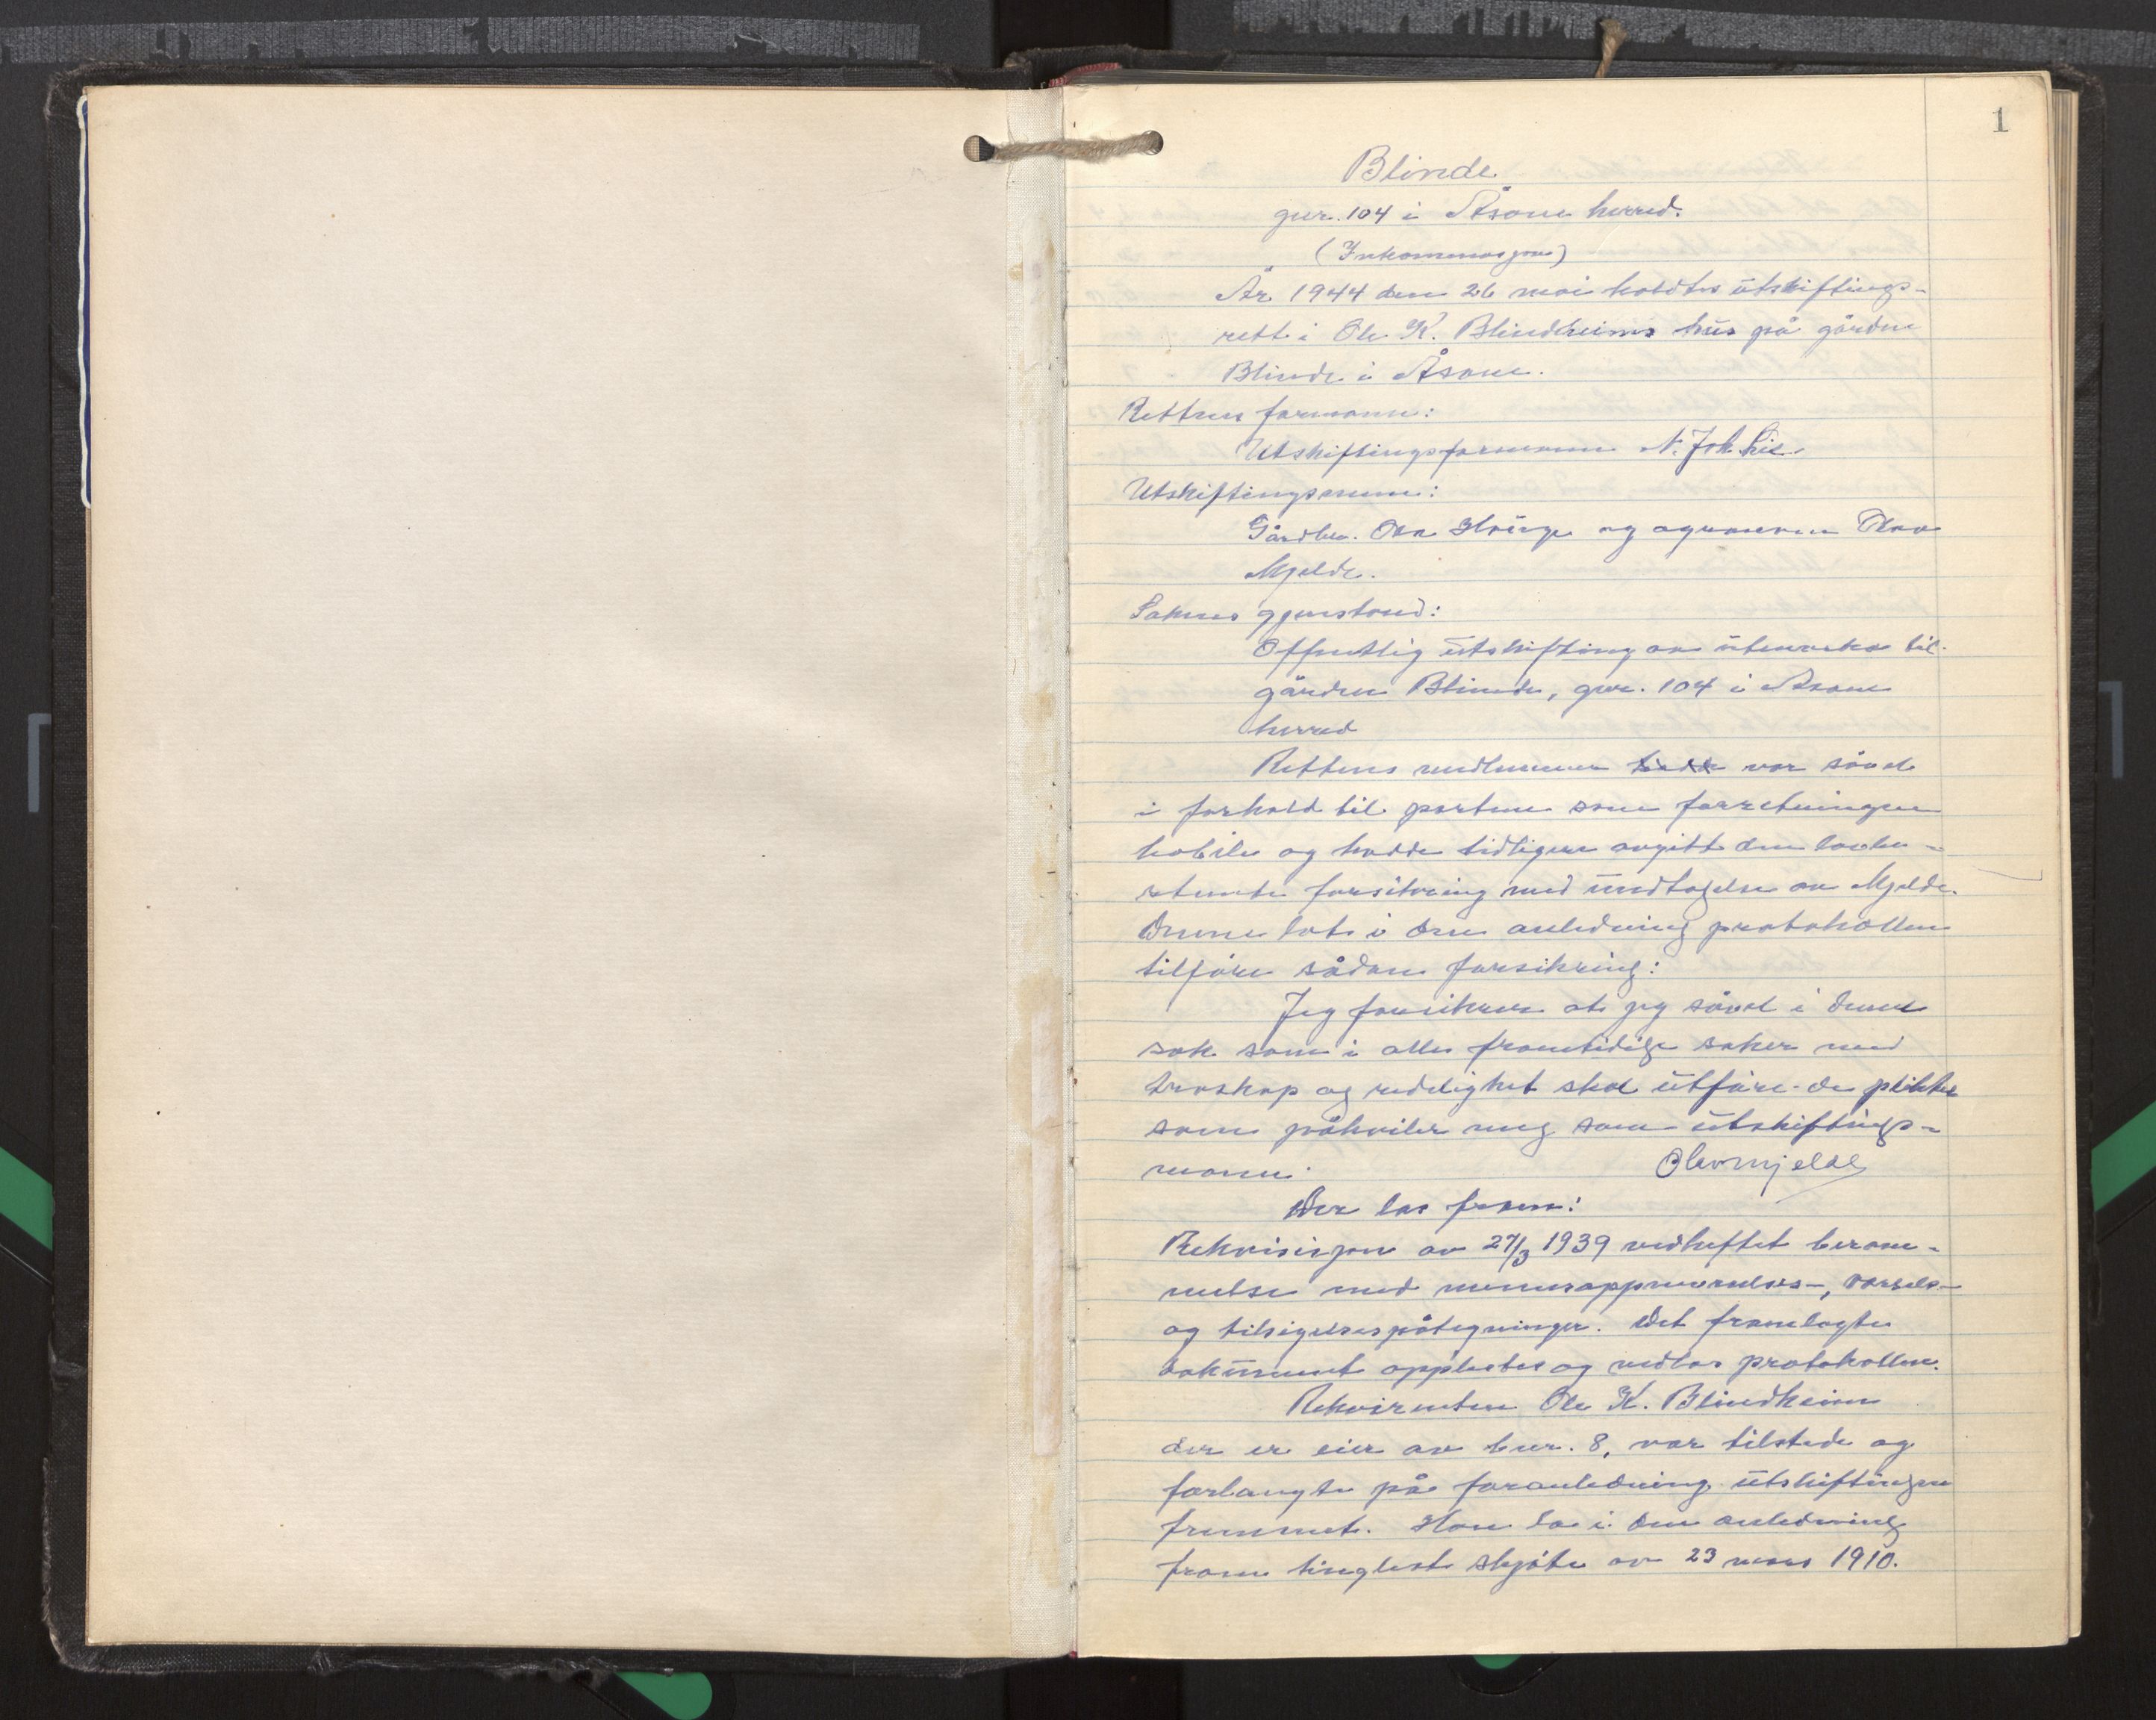 1
Blinde
gnr. 104 i Åsane herred.
(Inkaminasjon)
År 1944 den 26 mai holdtes utskiftings-
rett i Ole K. Blindheims hus på gården
Blinde i Åsane.
Rettens formann:
Utskiftingsformann N. Joh. Lie.
Utskiftingsmenn:
Gårdbr. Ola Hauge og agronom Olav
Mjelde.
Sakens gjenstand:
Offentlig utskifting av utmarka til
gården Blinde, gnr. 104 i Åsane
herred
Rettens medlemmer var såvel
i forhold til partene som forretningen
habile og hadde tidligere avgitt den lovbe-
stemte forsikring med undtagelse av Mjelde.
Denne lot i den anledning protokollen
tilføre sådan forsikring:
Jeg forsikrer at jeg såvel i denne
sak som i alle framtidige saker med
troskap og redelighet skal utføre de plikter
som påhviler meg som utskiftings-
mann.
Olav Mjelde
Der las fram:
Rekvisisjon av 27/3 1939 vedheftet beram-
melse med mennsoppnevnelses-, varsels-
og tilsigelsespåtegninger. Det framlagte
dokument opplestes og vedlas protokollen.
Rekvirenten Ole K. Blindheim
der er eier av bnr. 8, var tilstede og
forlangte på foranledning utskiftingen
fremmet. Han la i den anledning
fram tinglest skjøte av 23 mars 1910.